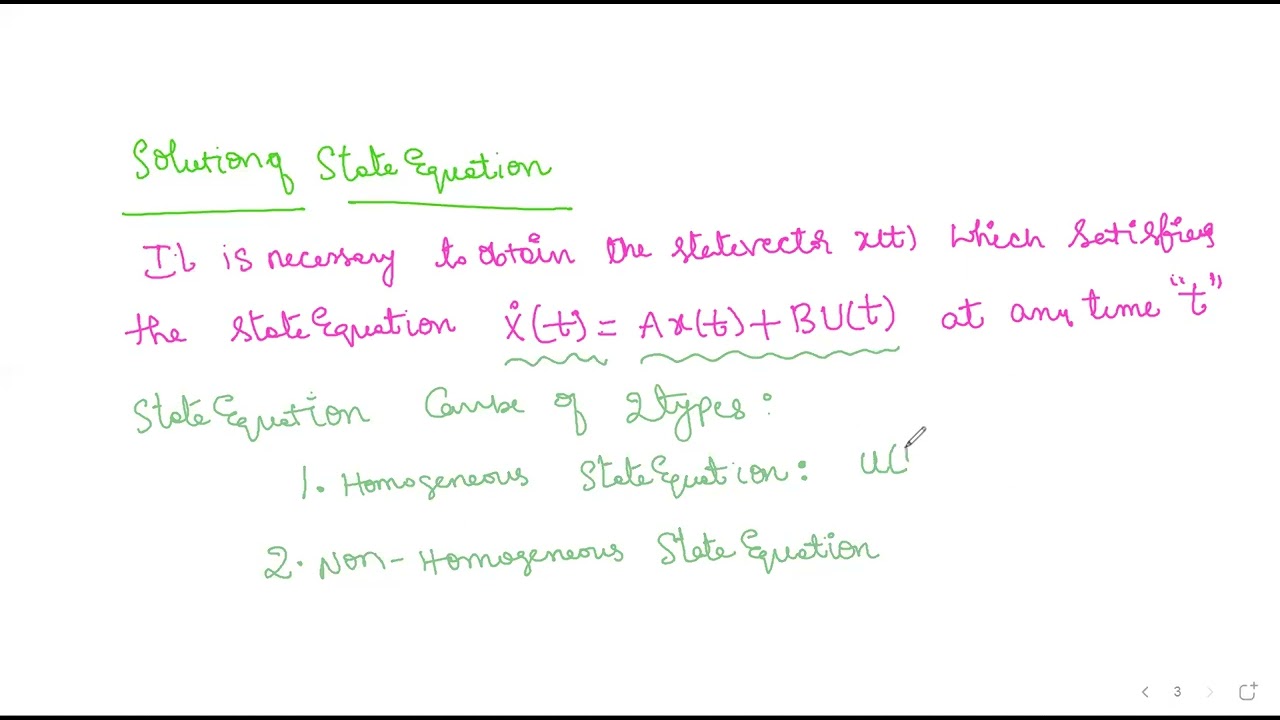 Solution of State Equation
It is necessary to obtain the statevector x(t) which satisfies
the state Equation Ẋ(t) = Ax(t) + BU(t) at any time "t"
State Equation Can be of 2 types :
1. Homogeneous State Equation : U(
2. Non-Homogeneous State Equation
3